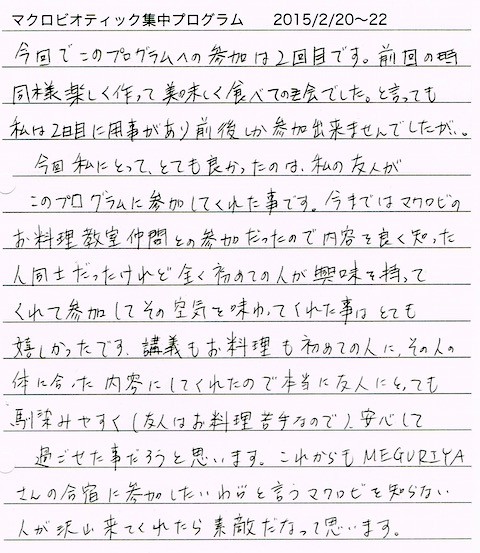 マクロビオティック集中プログラム 2015/2/20〜22
今回でこのプログラムへの参加は2回目です。前回の時
同様楽しく作って美味しく食べての会でした。と言っても
私は2日目に用事があり前後しか参加出来ませんでしたが、。
今回私にとって、とても良かったのは、私の友人が
このプログラムに参加してくれた事です。今まではマクロビの
お料理教室仲間との参加だったので内容を良く知った
人同士だったけれど全く初めての人が興味を持って
くれて参加してその空気を味わってくれた事はとても
嬉しかったです、講義もお料理も初めての人に、その人の
体に合った内容にしてくれたので本当に友人にとっても
馴染みやすく(友人はお料理苦手なので)、安心して
過ごせた事だろうと思います。これからもMEGURIYA
さんの合宿に参加したいわ〜と言うマクロビを知らない
人が沢山来てくれたら素敵だなって思います。